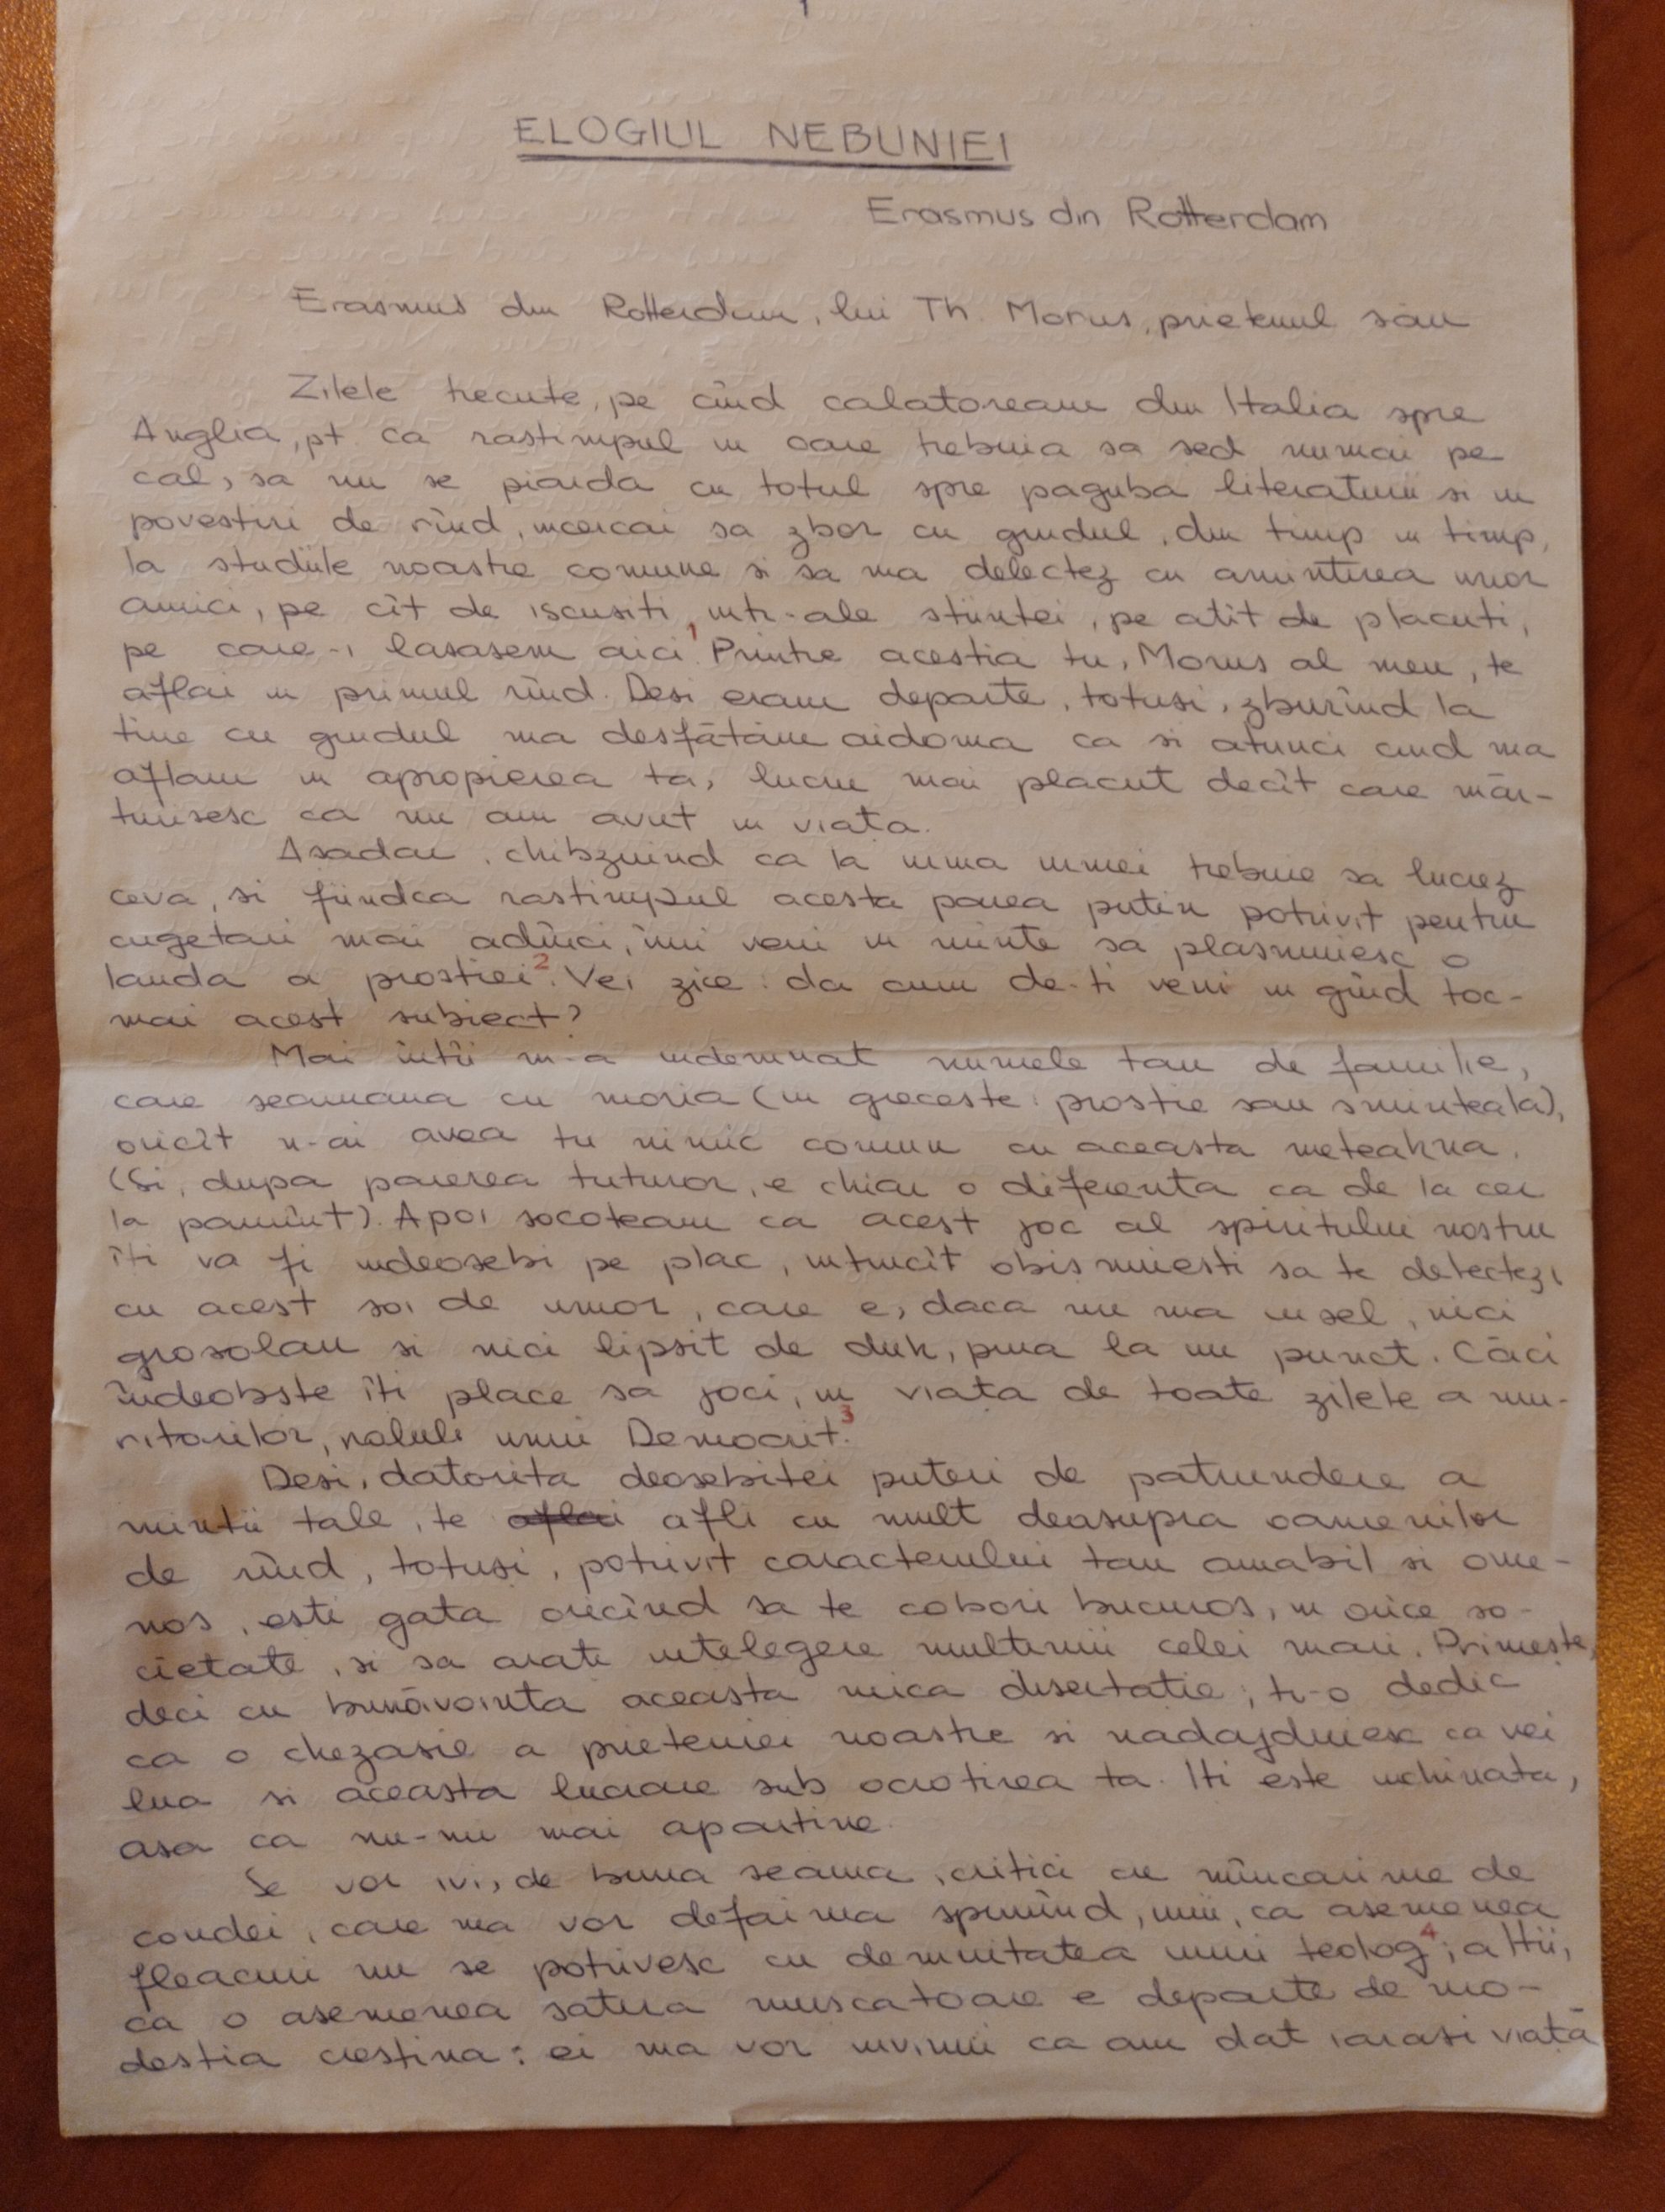 ELOGIUL NEBUNIEI
Erasmus din Rotterdam
Erasmus din Rotterdam, lui Th. Morus, prietenul său
Zilele trecute, pe cînd calatoream din Italia spre
Anglia, pt. ca rastimpul in care trebuia sa sed numai pe
cal, sa nu se piarda cu totul spre paguba literaturii si in
povestiri de rînd, incercai sa zbor cu gindul, din timp in timp,
la studiile noastre comune si sa ma delectez cu amintirea unor
amici, pe cît de iscusiti intr-ale stiintei, pe atit de placuti,
pe care-i lasasem aici.1 Printre acestia tu, Morus al meu, te
aflai in primul rînd. Desi eram departe, totusi, zburînd la
tine cu gindul ma desfătăm aidoma ca si atunci cind ma
aflam in apropierea ta, lucru mai placut decît care măr-
turisesc ca nu am avut in viața.
Asadar, chibzuind ca la urma urmei trebuie sa lucrez
ceva, si fiindca rastimpul acesta parea putin potrivit pentru
cugetari mai adînci, îmi veni in minte sa plasmuiesc o
lauda a prostiei2. Vei zice: da cum de-ti veni in gînd toc-
mai acest subiect?
Mai întîi m-a indemnat numele tau de familie,
care seamana cu moria (in greceste: prostie sau sminteala),
oricît n-ai avea tu nimic comun cu aceasta meteahna.
(Si, dupa parerea tuturor, e chiar o diferenta ca de la cer
la pamînt). Apoi socoteam ca acest joc al spiritului nostru
îti va fi indeosebi pe plac, intrucît obisnuiesti sa te delectezi
cu acest soi de umor, care e, daca nu ma insel, nici
grosolan si nici lipsit de duh, pina la un punct. Căci
îndeobste îti place sa joci, in viața de toate zilele a mu-
ritorilor, rolul unui Democrit.3
Desi, datorita deosebitei puteri de patrundere a
mintii tale, te aflai afli cu mult deasupra oamenilor
de rînd, totusi, potrivit caracterului tau amabil si ome-
nos, esti gata oricînd sa te cobori bucuros, in orice so-
cietate, si sa arati intelegere multimii celei mari. Primește,
deci cu bunăvointa aceasta mica disertatie; ti-o dedic
ca o chezasie a prieteniei noastre si nadajduiesc ca vei
lua si aceasta lucrare sub ocrotirea ta. Iti este inchinata,
asa ca nu-mi mai apartine.
Se vor ivi, de buna seama, critici cu mîncarime de
condei, care ma vor defaima spunînd, unii, ca asemenea
fleacuri nu se potrivesc cu demnitatea unui teolog4; altii,
ca o asemenea satira muscatoare e departe de mo-
destia crestina: ei ma vor invinui ca am dat iarasi viață